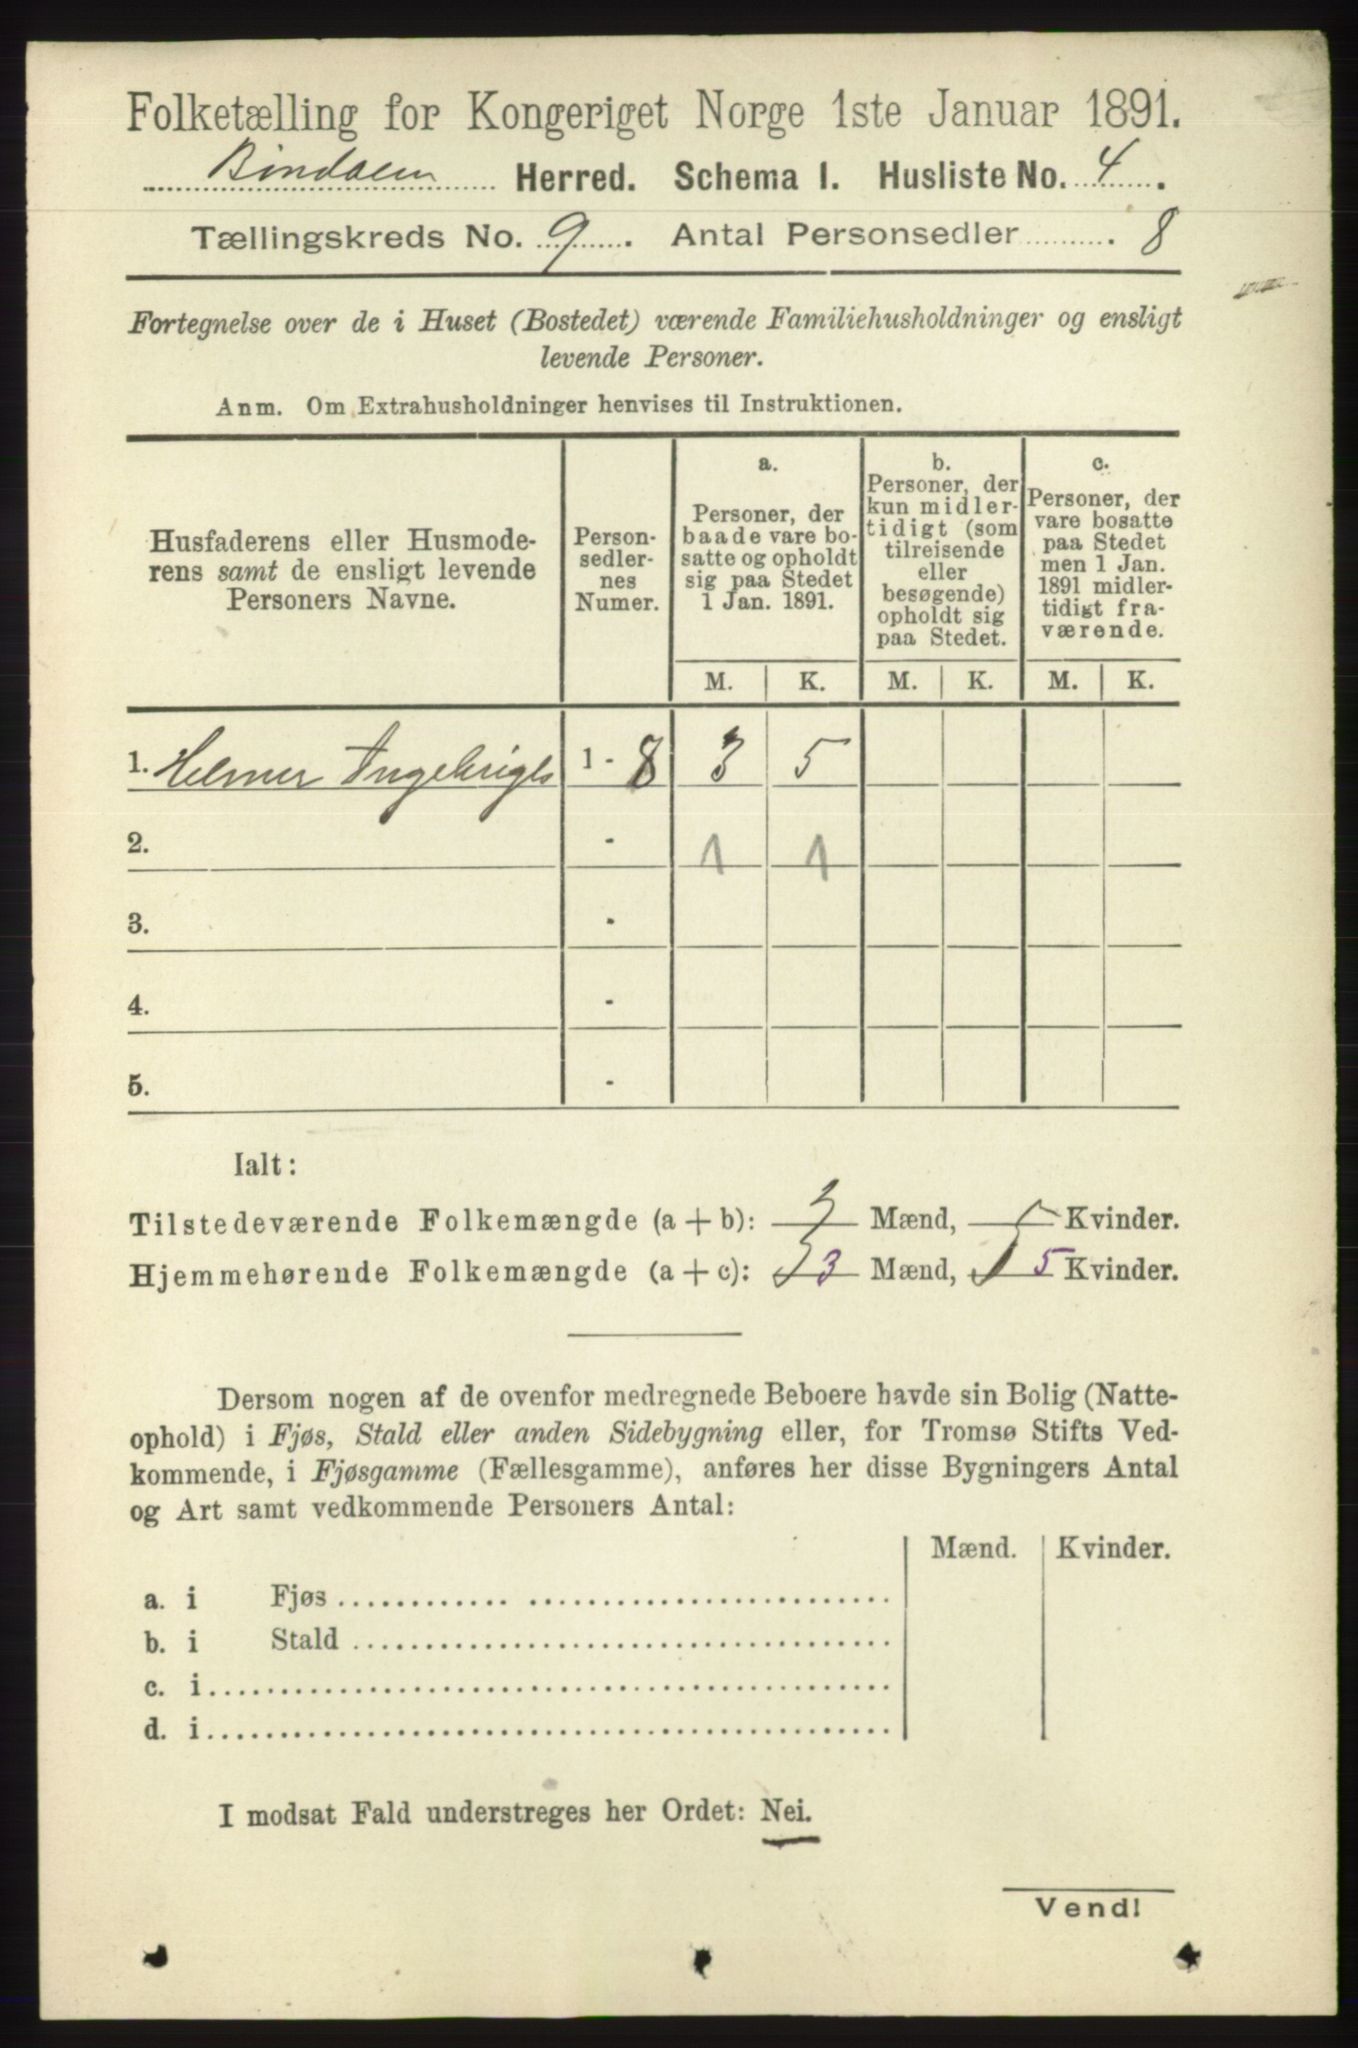 Folketælling for Kongeriget Norge 1ste Januar 1891.
Bindalen Herred. Schema I. Husliste No. 4.
Tællingskreds No. 9. Antal Personsedler 8
Fortegnelse over de i Huset (Bostedet) værende Familiehusholdninger og ensligt
levende Personer.
Anm. Om Extrahusholdninger henvises til Instruktionen.
Husfaderens eller Husmode-
rens samt de ensligt levende
Personers Navne.
Person-
sedler-
nes
Numer.
a.
Personer, der
baade vare bo-
satte og opholdt
sig paa Stedet
1 Jan. 1891.
b.
Personer, der
kun midler-
tidigt (som
tilreisende
eller
besøgende)
opholdt sig
paa Stedet.
c.
Personer, der
vare bosatte
paa Stedet
men 1 Jan.
1891 midler-
tidigt fra-
værende.
M. K. M. K. M. K.
1. Helmer Ingebrigts 1 - 8 3 5
2. - 1 1
3. -
4. -
5. -
Ialt:
Tilstedeværende Folkemængde (a + b): 3 Mænd, 5 Kvinder.
Hjemmehørende Folkemængde (a + c): 3 Mænd, 5 Kvinder.
Dersom nogen af de ovenfor medregnede Beboere havde sin Bolig (Natte-
ophold) i Fjøs, Stald eller anden Sidebygning eller, for Tromsø Stifts Ved-
kommende, i Fjøsgamme (Fællesgamme), anføres her disse Bygningers Antal
og Art samt vedkommende Personers Antal:
Mænd. Kvinder.
a. i Fjøs
b. i Stald
c. i
d. i
I modsat Fald understreges her Ordet: Nei.
Vend!